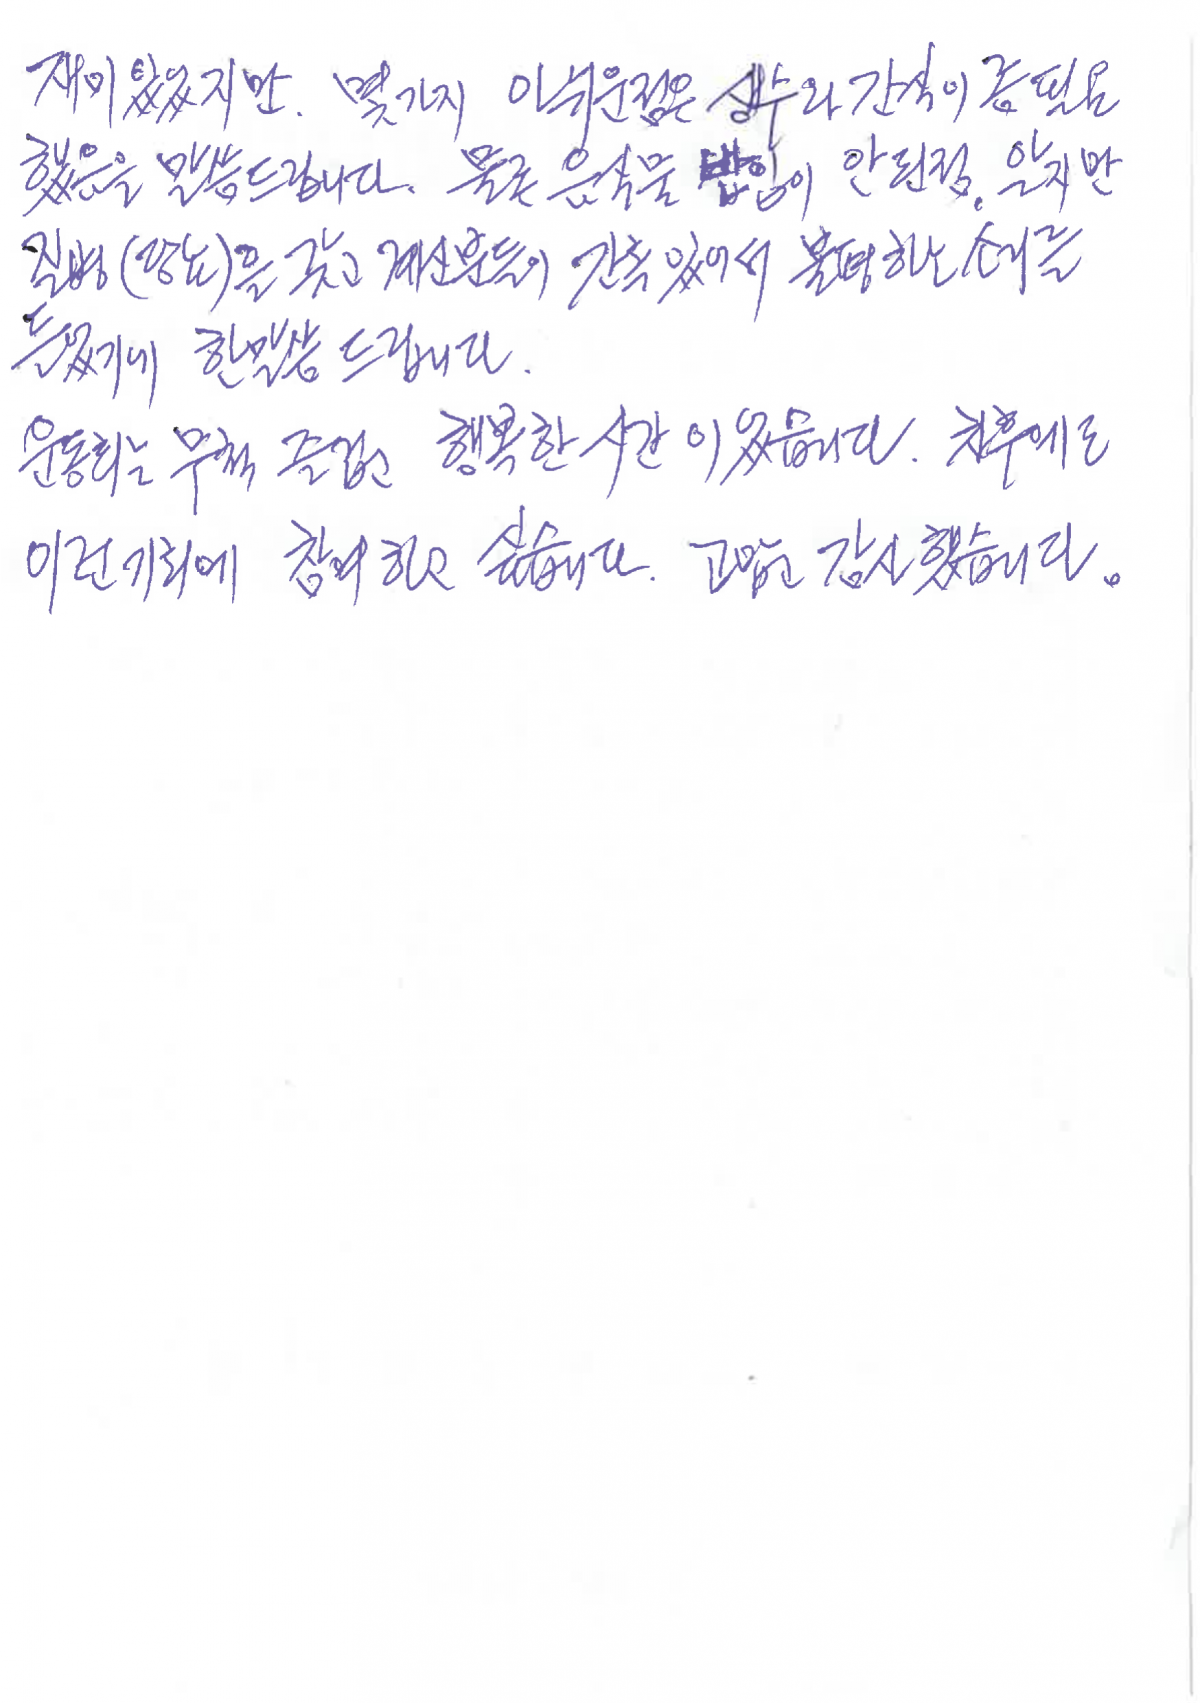 재미있었지만. 몇가지 아쉬운점은 생수와 간식이 좀 필요
했음을 말씀드립니다. 물론 음식물 반입이 안된점. 알지만
질병(당뇨)을 갖고 계신분들이 간혹 있어서 불평하는 소리를
들었기에 한말씀 드립니다.
운동회는 무척 즐겁고 행복한 시간이었습니다. 차후에도
이런기회에 참여하고 싶습니다. 고맙고 감사했습니다.